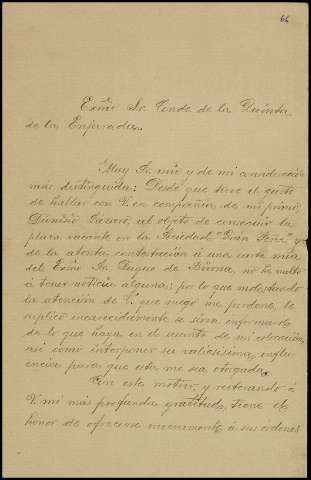 66
Exmo Sr. Conde de la Quinta
de la Enjarada.
Muy Sr. mio y de mi consideración
más distinguida: Desde que tuve el gusto
de hablar con V. en compañia de mi primo
Dionisio al objeto de conseguir la
plaza vacante en la Sociedad "Gran Peña" y
de la atenta contestación á una carta mia
del Exmo Sr. Duque de Bivona, no he vuelto
á tener noticia alguna; por lo que molestando
la atención de V. que ruego me perdone, le
suplico encarecidamente se sirva informarse
de lo que haya en el asunto de mi colocación,
asi como interponer su valiosisima influ-
encia para que esta me sea otorgada.
Con este motivo, y reiterando á
V. mi más profunda gratitud, tiene el
honor de ofrecerse nuevamente á sus órdenes